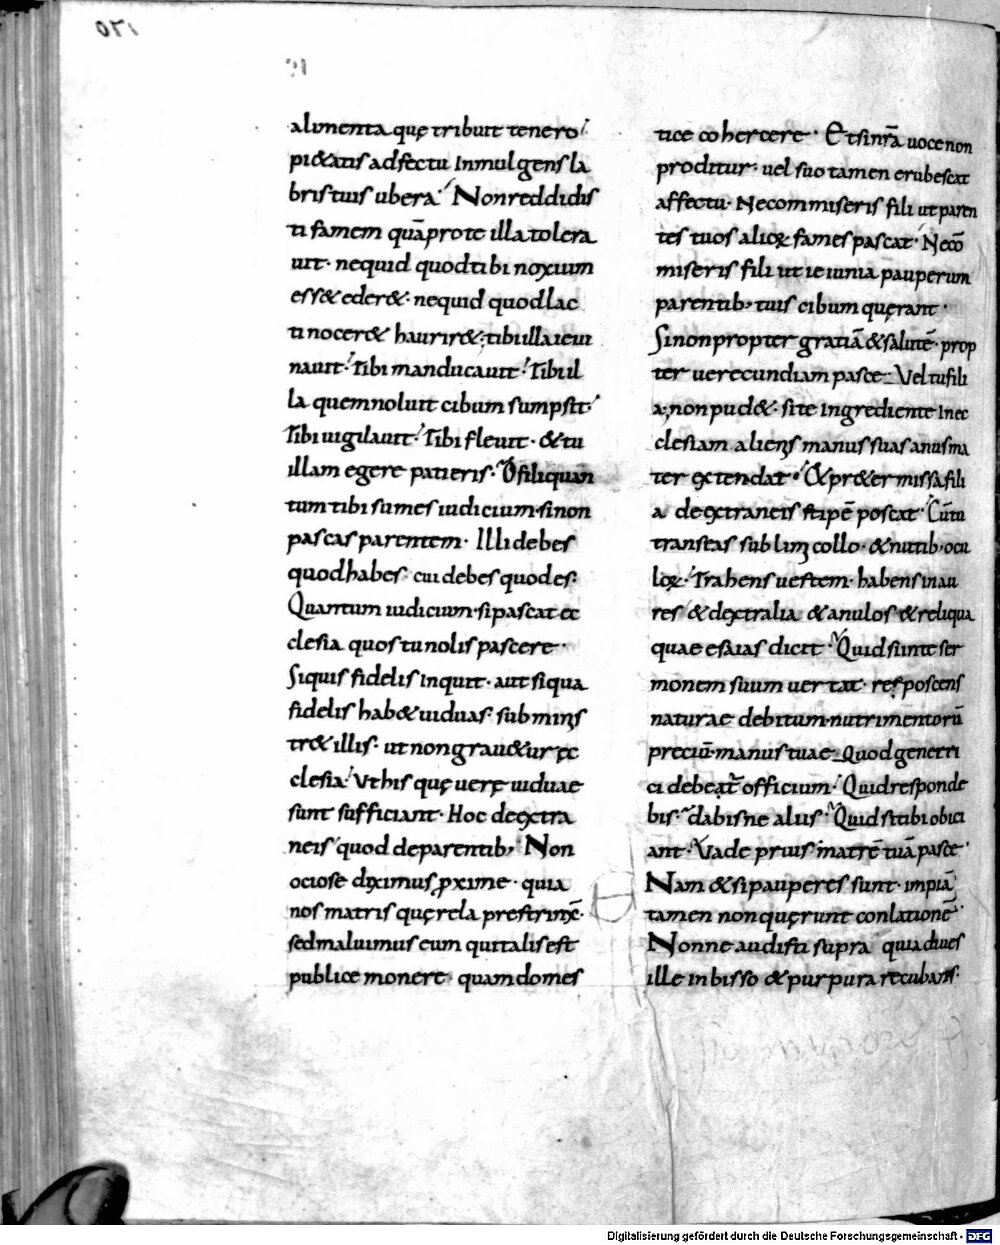 alimenta quę tribuit tenero
pi&atis adfectu Inmulgens la
bris tuis ubera. Non reddidis
ti famem quā pro te illa tolera
uit. nequid quod tibi noxium
ess& eder&. nequid quod lac
ti nocer& haurir&; tibi illa ieiu
nauit. Tibi manducauit. Tibi il
la quem noluit cibum sumpsit.
Tibi uigilauit. Tibi fleuit. & tu
illam egere pateris. O fili quan
tum tibi sumes iudicium. si non
pascas parentem. Illi debes
quod habes. cui debes quod es.
Quantum iudicium. si pascat ec
clesia quos tu nolis pascere.
Siquis fidelis inquit. aut siqua
fidelis hab& uiduas. subminis
tr& illis. ut non grau&ur ęc
clesia. Vt his quę uerę uiduae
sunt sufficiant. Hoc de extra
neis quod de parentib; Non
ociose diximus pxime. quia
nos matris querela prestrinx̄.
sed maluimus eum qui talis est
publice monere quam domes
tice cohercere. Et si nr̄a uoce non
proditur. uel suo tamen erubescat
affectu. Ne commiseris fili ut paren
tes tuos alioꝝ fames pascat. Ne cō
miseris fili ut ieiunia pauperum
parentib; tuis cibum quęrant.
Si non propter gratiā & salutē. prop
ter uerecundiam pasce. Vel tu fili
a; non pud&. si te Ingrediente In ec
clesiam alienis manus suas anus ma
ter extendat. & pr&ermissa fili
a de extraneis stipē poscat. Cū tu
transeas sublimi collo. & nutib; ocu
loꝝ. Trahens uestem. habens in au
res & dextralia & anulos & reliqua
quae esaias dicit. Quid si in te ser
monem suum uertat. res poscens
naturae debitum. nutrimentorū
preciū. manus tuae. Quod generi
ci debeat̄ officium. Quid responde
bis. dabis ne alius. Quid si tibi obici
ant. Vade prius matrē tuā pasce.
Nam & si pauperes sunt. impiā
tamen non quęrunt conlationē.
Nonne audisti supra quia diues
ille in bisso & purpura recubans.
Digitalisierung gefördert durch die Deutsche Forschungsgemeinschaft - DFG